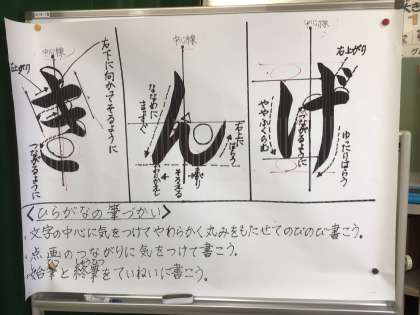 げ
ん
き
中心線
右上がり
つながるように
ややふくらむ
ゆったりはらう
中心線
ななめに
まっすぐ
右上に
はらう
そろえる
中心線
右上がり
右下に向かってそるように
つながるように
<ひらがなの筆づかい>
・文字の中心に気をつけてやわらかく丸みをもたせてのびのび書こう。
・点画のつながりに気をつけて書こう。
・始筆と終筆をていねいに書こう。